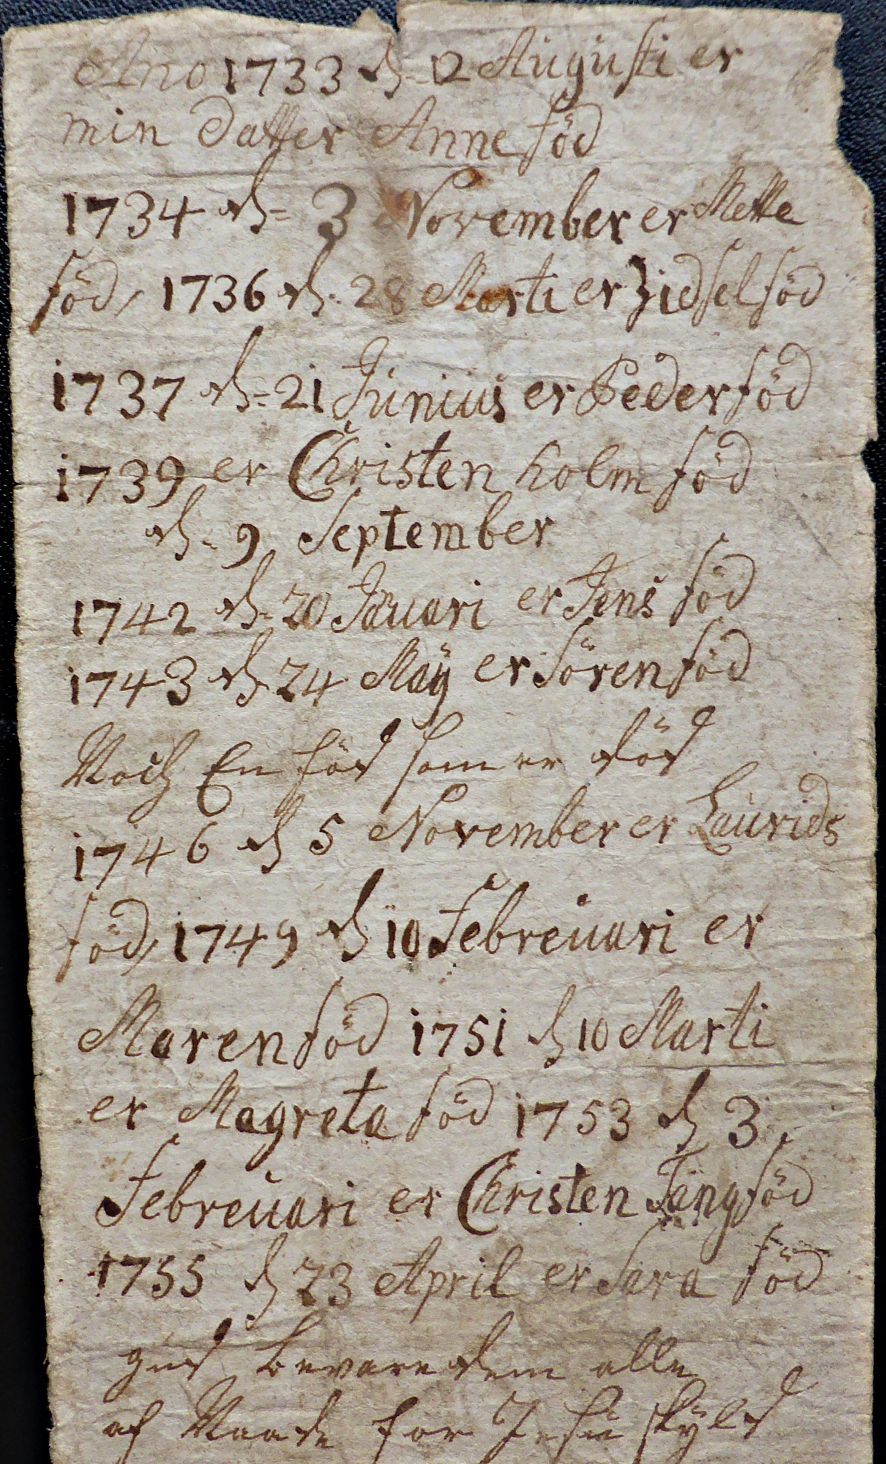 Ano 1733 d. 12 Augusti er
min datter Anne föd
1734 d. 3 November er Mette
föd, 1736 d. 28 Marti er Zidsel föd
1737 d. 21 Junius er Peder föd
1739 er Christen holm föd
d. 9 September
1742 d. 20 Januari er Jens föd
1743 d. 24 Maÿ er Sören föd
Noch En föd som er död
1746 d 5 November er Laurids
föd, 1749 d 10 Febreuari er
Maren föd 1751 d 10 Marti
er Magreta föd 1753 d 3
Febreuari er Christen föd
1755 d 23 April er Sara föd
gud bevare dem alle
af Naade for Jesu skÿld